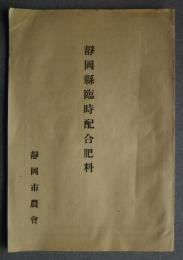 靜岡縣臨時配合肥料
靜岡市農會